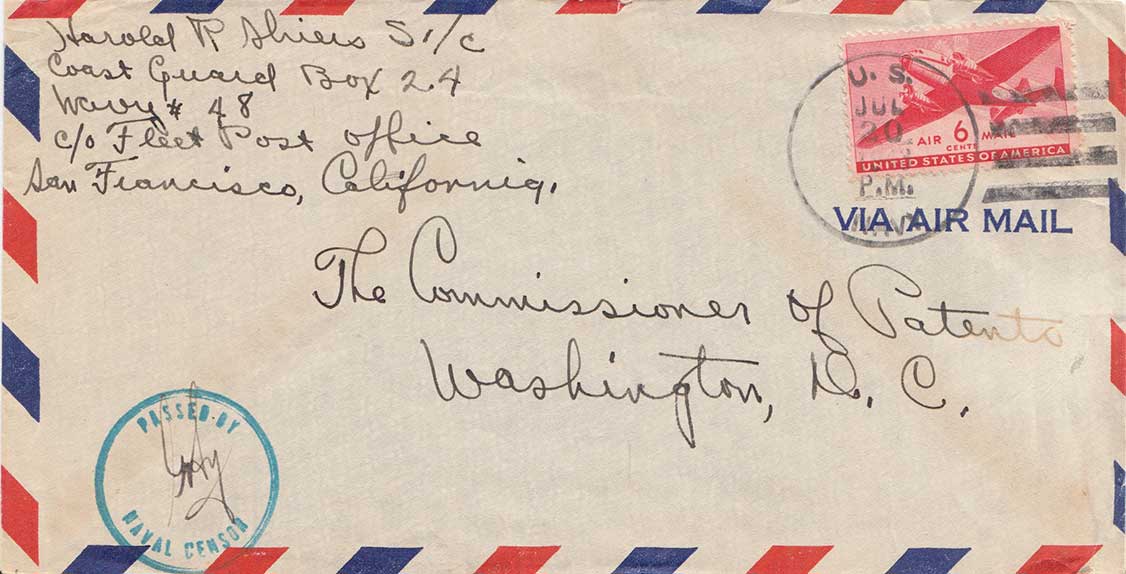 Harold R Shiers S 1/c
Coast Guard Box 24
Navy # 48
c/o Fleet Post Office
San Francisco, California.
U. S.
JUL
20
P.M.
NAVY
AIR 6 MAIL
CENTS
UNITED STATES OF AMERICA
VIA AIR MAIL
The Commissioner of Patents
Washington, D. C.
PASSED BY
NAVAL CENSOR